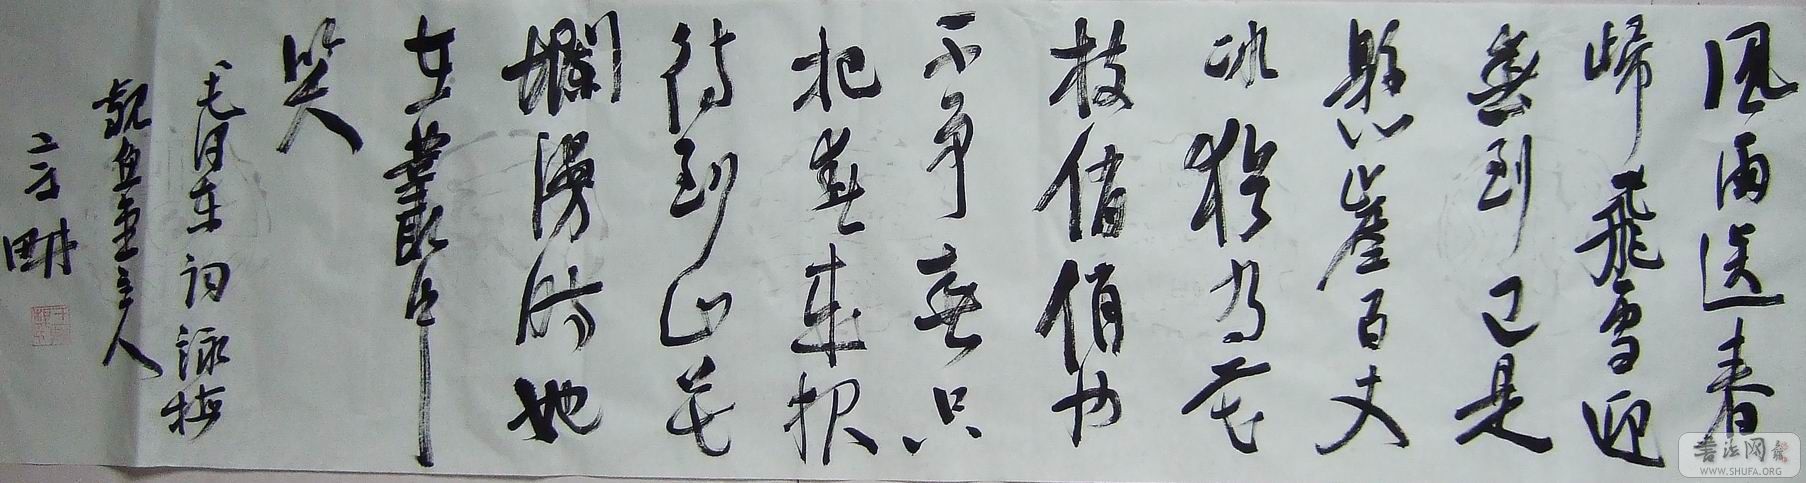 風雨送春
歸飛雪迎
春到已是
懸崖百丈
冰猶有花
枝俏俏也
不争春只
把春来报
待到山花
爛漫時她
在叢中
笑
毛泽东词詠梅
主人
畊
書法网
WWW.SHUFA.ORG